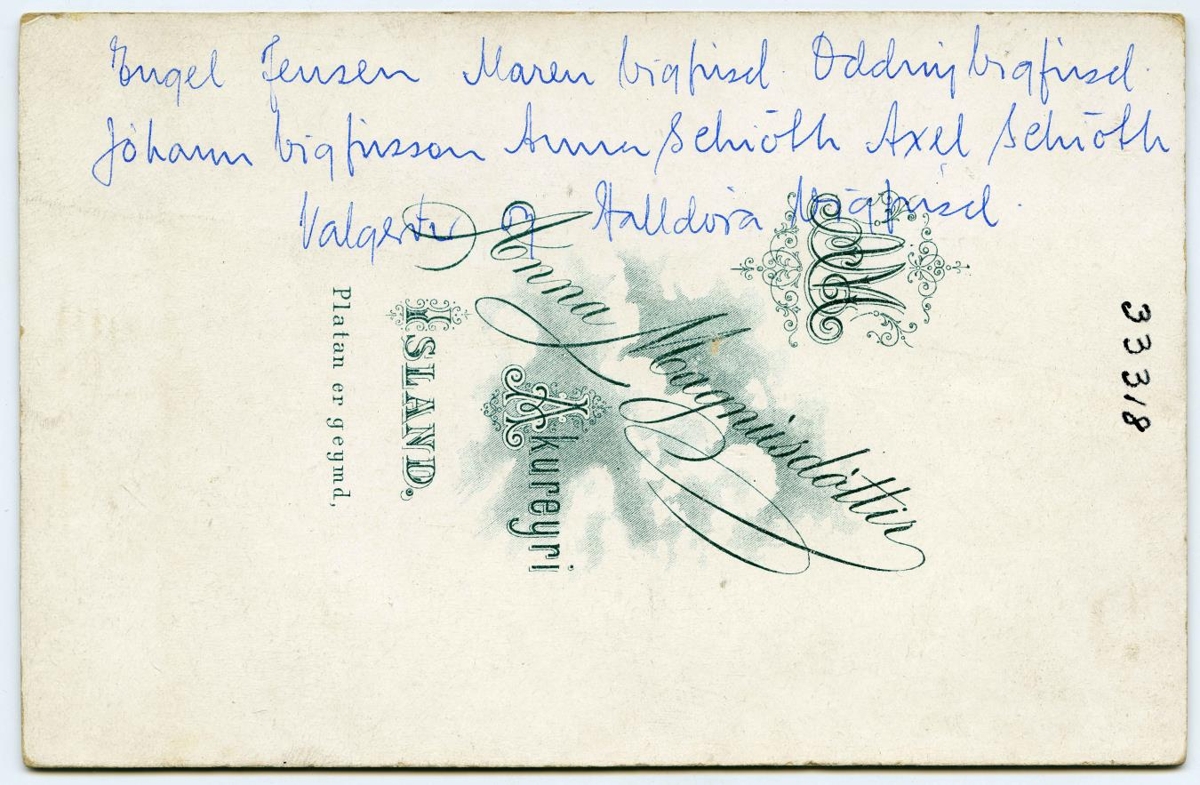 Engel Jensen Maren Vigfúsd. Oddný Vigfúsd.
Jóhann Vigfússon Anna Schiöth Axel Schiöth
Valgerður og Halldóra Vigfúsd.
AM
Anna Magnúsdóttir
Akureyri
ISLAND.
Platan er geymd,
33318